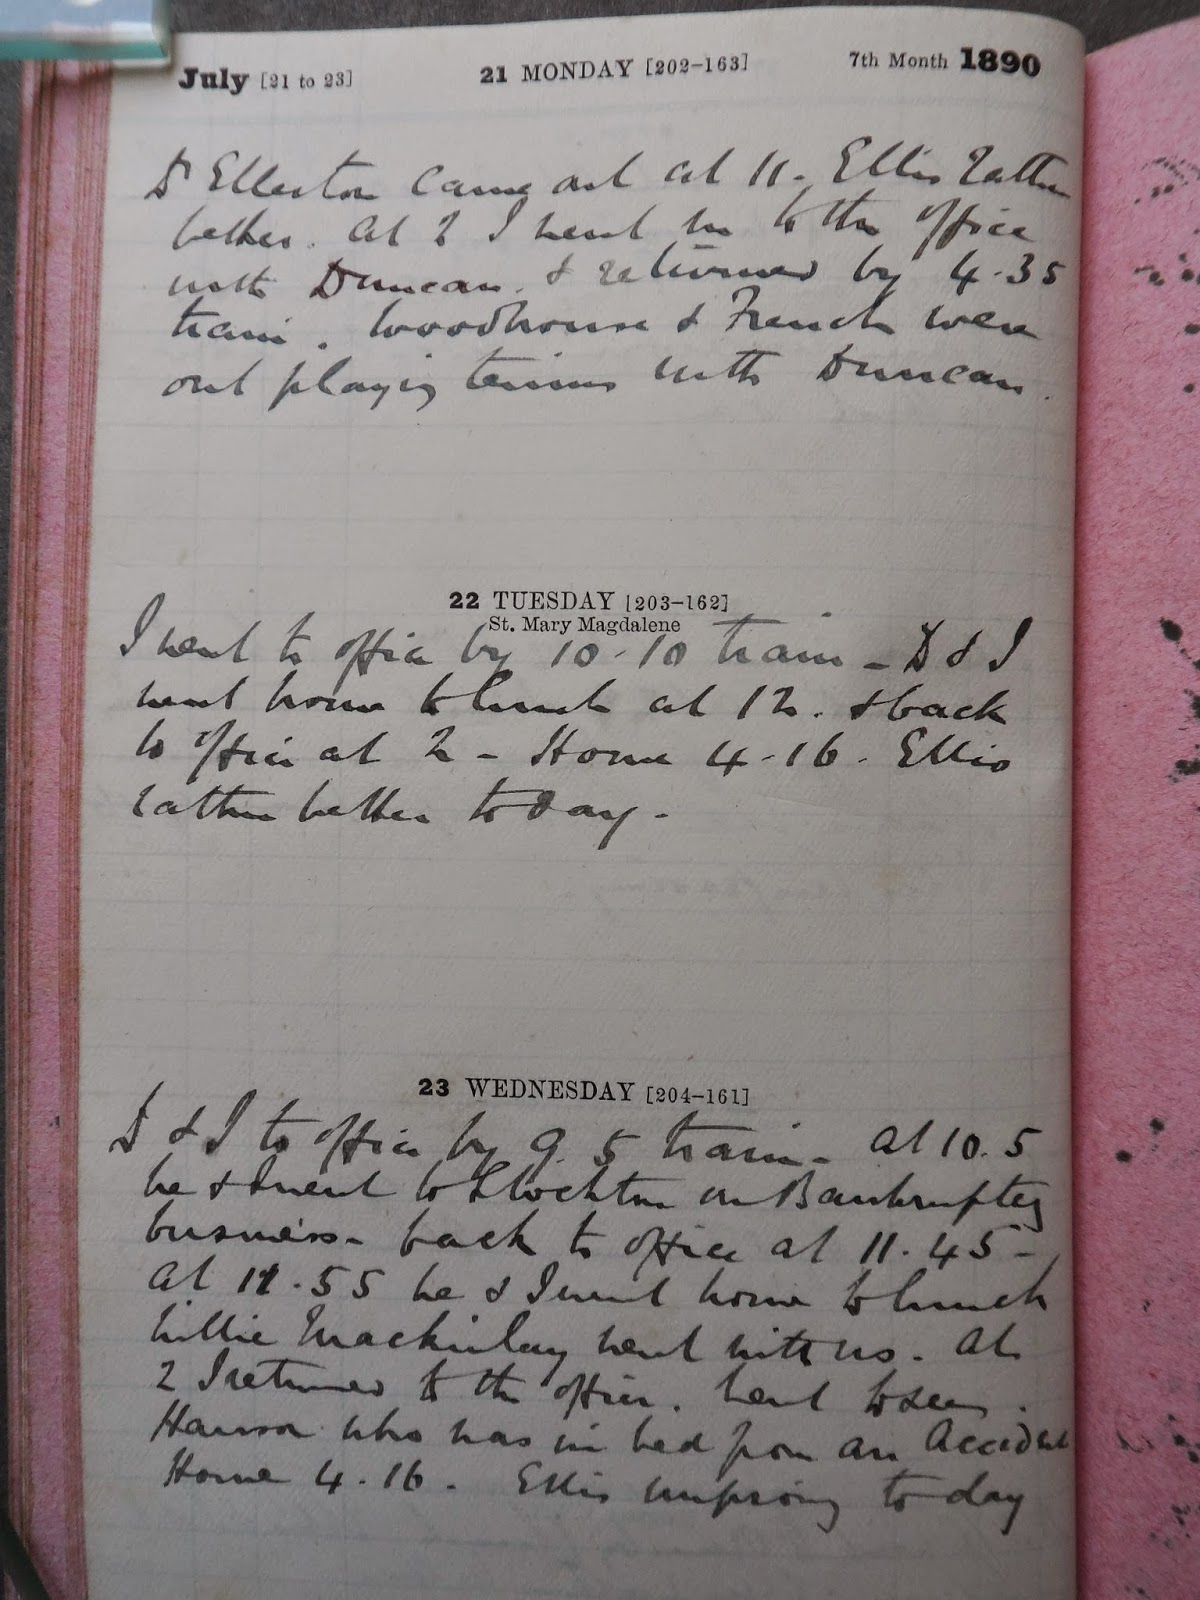 July [21 to 23] 21 MONDAY [202-163] 7th Month 1890
Dr Ellerton came out at 11. Ellis rather
better. at 2 I went in to the office
with Duncan. & returned by 4.35
train. Woodhouse & French were
out playing tennis with Duncan.
22 TUESDAY [203-162]
St. Mary Magdalene
I went to office by 10.10 train - D & I
went home to lunch at 12. & back
to office at 2 - Home 4.16. Ellis
rather better today.
23 WEDNESDAY [204-161]
D & I to office by 9.5 train - at 10.5
he & I went to Stockton on Bankruptcy
business - back to office at 11.45 -
at 11.55 he & I went home to lunch
Willie Mackinlay went with us. At
2 I returned to the office. Went to see
who was in bed from an accident
Home 4.16. Ellis improving to day